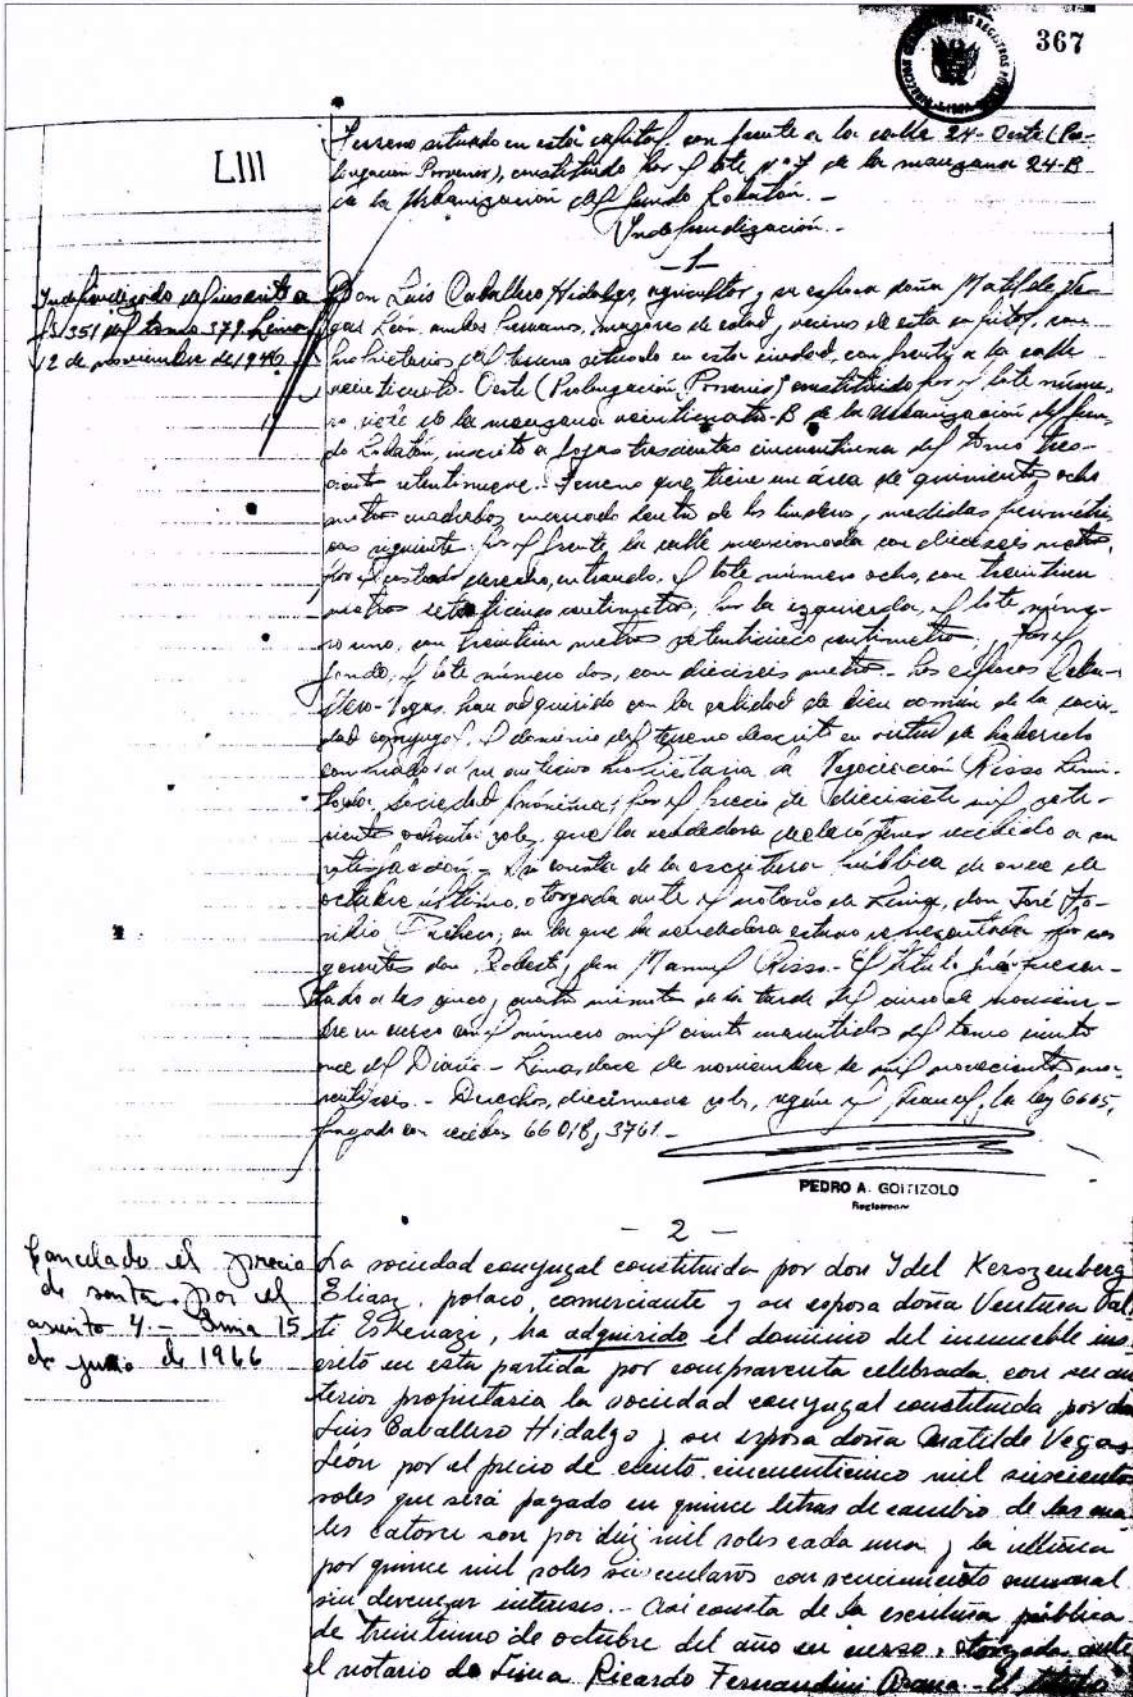 367
LIII
Terreno situado en esta capital, con frente a la calle 24-Oeste (Pro-
longación Porvenir), constituído por el lote Nº 7 de la manzana 24-B
de la Urbanización del fundo Lobatón.-
Independización.-
-1-
Independizado del inscrito a
fs 351 del tomo 379. Lima,
12 de noviembre de 1946
Don Luis Caballero Hidalgo, agricultor y su esposa doña Matilde Ve-
gas León, ambos peruanos, mayores de edad, vecinos de esta capital, son
propietarios del terreno situado en esta ciudad, con frente a la calle
veinticuatro-Oeste (Prolongación Porvenir) constituído por el lote núme-
ro siete de la manzana veinticuatro-B de la Urbanización del fun-
do Lobatón, inscrito a fojas trescientas cincuentiuna del tomo tres-
cientos setentinueve.- Terreno que tiene un área de quinientos ocho
metros cuadrados encerrado dentro de los linderos y medidas perimétri-
cas siguiente: por el frente, la calle mencionada con dieciseis metros,
por el costado derecho, entrando, el lote número ocho, con treintiun
metros setenticinco centímetros; por la izquierda, el lote núme-
ro uno, con treintiun metros setenticinco centímetros; y por el
fondo, el lote número dos, con dieciseis metros.- Los esposos Caba-
llero-Vegas han adquirido con la calidad de bien común de la socie-
dad conyugal, el dominio del terreno descrito en virtud de haberselo
comprado a su anterior propietaria la Negociación Risso Limi-
tada, Sociedad Anónima; por el precio de diecisiete mil sete-
cientos ochenta soles, que la vendedora declaró tener recibido a su
satisfacción.- Así consta de la escritura pública de once de
octubre último, otorgada ante el notario de Lima, don José
Pacheco; en la que la vendedora estuvo representada por sus
gerentes don Roberto y don Manuel Risso.- El título fué presen-
tado a las cinco y cuatro minutos de la tarde del cinco de noviem-
bre en curso con el número mil ciento cuarentidos del tomo ciento
once del Diario.- Lima, doce de noviembre de mil novecientos cua-
rentiseis.- Derechos, diecinueve soles, según el Arancel y la ley 6605,
pagado con recibos 66018 y 3761.-
PEDRO A. GOITIZOLO
Registrador
- 2 -
Cancelado el precio
de venta por el
asiento 4.- Lima 15
de junio de 1966
La sociedad conyugal constituida por don Idel Kerszenberg
Eliasz, polaco, comerciante y su esposa doña Ventura Val-
ti Eskenazi, ha adquirido el dominio del inmueble ins-
crito en esta partida por compraventa celebrada con su an-
terior propietaria la sociedad conyugal constituida por don
Luis Caballero Hidalgo y su esposa doña Matilde Vegas
León por el precio de ciento cincuenticinco mil seiscientos
soles que será pagado en quince letras de cambio de las cua-
les catorce son por diez mil soles cada una y la última
por quince mil soles con vencimiento mensual
sin devengar intereses.- Así consta de la escritura pública
de treintiuno de octubre del año en curso, otorgada ante
el notario de Lima Ricardo Fernandini Arana.- El título